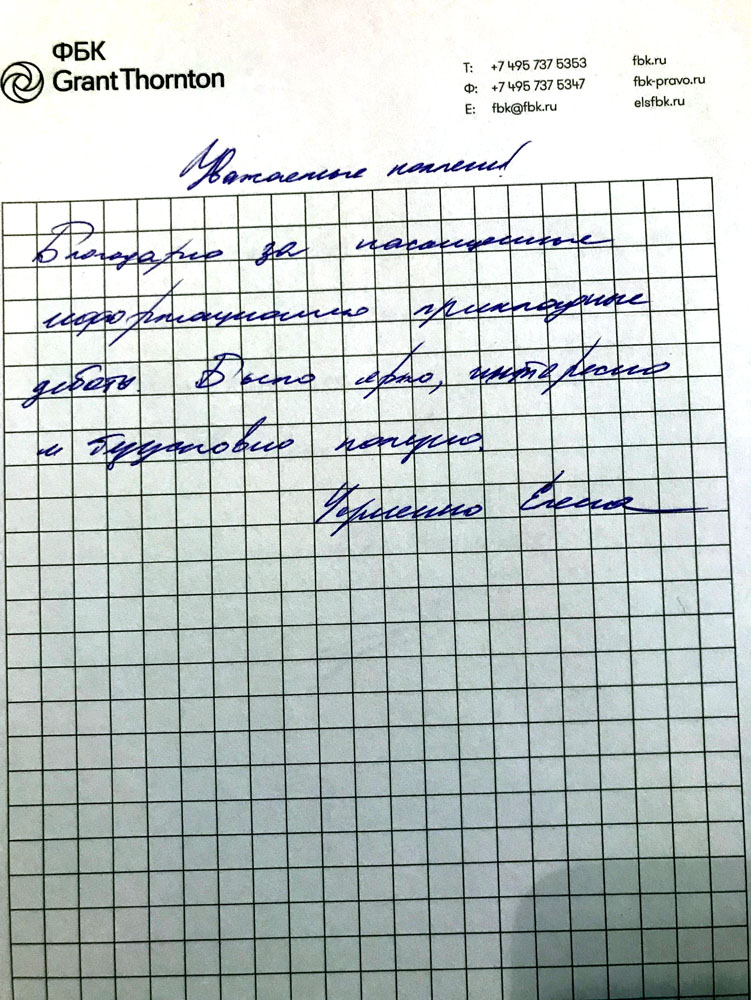 ФБК
Grant Thornton
Т: +7 495 737 5353
Ф: +7 495 737 5347
E: fbk@fbk.ru
fbk.ru
fbk-pravo.ru
elsfbk.ru
Уважаемые коллеги!
Благодарю за насыщенные
информационно прикладные
дебаты. Было ярко, интересно
и безусловно полезно.
Елена